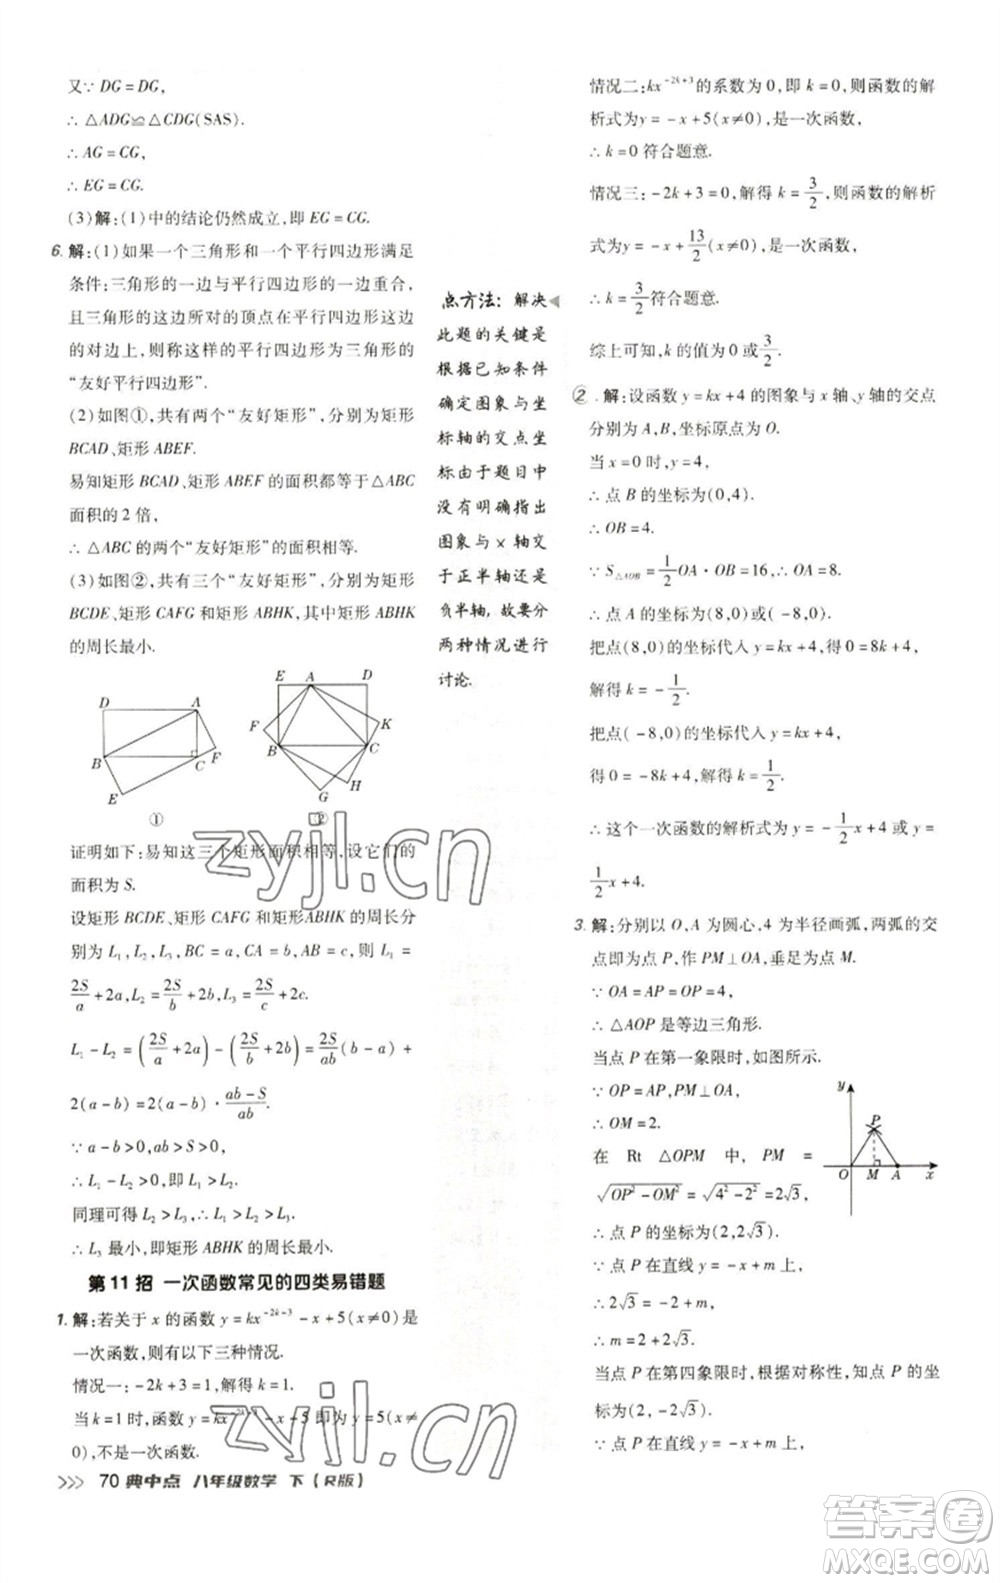 又∵ DG = DG,
∴ △ADG≌△CDG(SAS).
∴ AG = CG,
∴ EG = CG.
(3)解:(1)中的结论仍然成立,即 EG = CG.
6. 解:(1)如果一个三角形和一个平行四边形满足
条件:三角形的一边与平行四边形的一边重合,
且三角形的这边所对的顶点在平行四边形这边
的对边上,则称这样的平行四边形为三角形的
“友好平行四边形”.
(2)如图①,共有两个“友好矩形”,分别为矩形
BCAD、矩形 ABEF.
易知矩形 BCAD、矩形 ABEF 的面积都等于△ABC
面积的 2 倍,
∴ △ABC 的两个“友好矩形”的面积相等.
(3)如图②,共有三个“友好矩形”,分别为矩形
BCDE、矩形 CAFG 和矩形 ABHK,其中矩形 ABHK
的周长最小.
D A B C F E ①
E A D F K B C H G ②
证明如下:易知这三个矩形面积相等,设它们的
面积为 S.
设矩形 BCDE、矩形 CAFG 和矩形ABHK 的周长分
别为 L₁、L₂、L₃,BC = a,CA = b,AB = c,则 L₁ =
2S/a + 2a,L₂ = 2S/b + 2b,L₃ = 2S/c + 2c.
L₁ − L₂ = (2S/a + 2a) − (2S/b + 2b) = 2S/ab (b − a) +
2(a − b) = 2(a − b) · (ab − S)/ab.
∵ a − b > 0,ab > S,a > 0,b > 0,
∴ L₁ − L₂ > 0,即 L₁ > L₂.
同理可得 L₂ > L₃,∴ L₁ > L₂ > L₃.
∴ L₃ 最小,即矩形 ABHK 的周长最小.
第 11 招 一次函数常见的四类易错题
1. 解:若关于 x 的函数 y = kx^(−2k+3) − x + 5(x≠0)是
一次函数,则有以下三种情况.
情况一: −2k + 3 = 1,解得 k = 1.
当 k = 1 时,函数 y = kx^(−2k+3) − x + 5 即为 y = 5(x≠
0),不是一次函数.
点方法:解决
此题的关键是
根据已知条件
确定图象与坐
标轴的交点坐
标由于题目中
没有明确指出
图象与 x 轴交
于正半轴还是
负半轴,故要分
两种情况进行
讨论.
情况二:kx^(−2k+3)的系数为 0,即 k = 0,则函数的解
析式为 y = −x + 5(x≠0),是一次函数,
∴ k = 0 符合题意.
情况三: −2k + 3 = 0,解得 k = 3/2,则函数的解析
式为 y = −x + 13/2(x≠0),是一次函数,
∴ k = 3/2符合题意.
综上可知,k 的值为 0 或3/2.
2. 解:设函数 y = kx + 4 的图象与 x 轴、y 轴的交点
分别为 A,B,坐标原点为 O.
当 x = 0 时,y = 4,
∴ 点 B 的坐标为(0,4).
∴ OB = 4.
∵ S△AOB = 1/2 OA · OB = 16,∴ OA = 8.
∴ 点 A 的坐标为(8,0)或( −8,0).
把点(8,0)的坐标代入 y = kx + 4,得 0 = 8k + 4,
解得 k = −1/2.
把点( −8,0)的坐标代入 y = kx + 4,
得 0 = −8k + 4,解得 k = 1/2.
∴ 这个一次函数的解析式为 y = −1/2x + 4 或 y =
1/2x + 4.
3. 解:分别以 O,A 为圆心,4 为半径画弧,两弧的交
点即为点 P,作 PM⊥OA,垂足为点 M.
∵ OA = AP = OP = 4,
∴ △AOP 是等边三角形.
当点 P 在第一象限时,如图所示.
∵ OP = AP,PM⊥OA,
∴ OM = 2.
在 Rt △OPM 中, PM =
√(OP² − OM²) = √(4² − 2²) = 2√3,
y P O M A x
∴ 点 P 的坐标为(2,2√3).
∵ 点 P 在直线 y = −x + m 上,
∴ 2√3 = −2 + m,
∴ m = 2 + 2√3.
当点 P 在第四象限时,根据对称性,知点 P 的坐
标为(2, −2√3).
∵ 点 P 在直线 y = −x + m 上,
>>> 70 典中点 八年级数学 下(R版)
zyjl.cn
zyjl.cn
答案圈
MXQE.COM